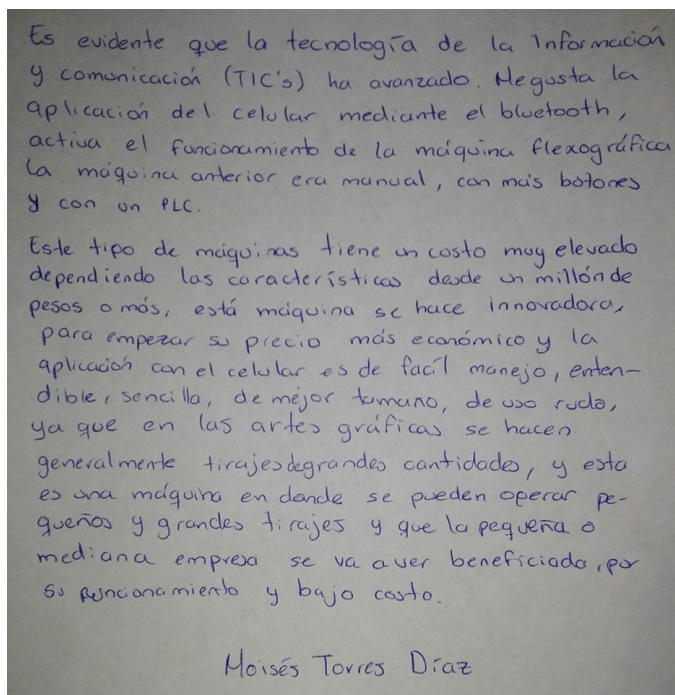 Es evidente que la tecnología de la Información
y comunicación (TIC's) ha avanzado. Me gusta la
aplicación del celular mediante el bluetooth,
activa el funcionamiento de la máquina flexográfica
la máquina anterior era manual, con más botones
y con un PLC.
Este tipo de máquinas tiene un costo muy elevado
dependiendo las características desde un millón de
pesos o más, está máquina se hace innovadora,
para empezar su precio más económico y la
aplicación con el celular es de facíl manejo, enten-
dible, sencilla, de mejor tamaño, de uso rudo,
ya que en las artes gráficas se hacen
generalmente tirajes de grandes cantidades, y esta
es una máquina en donde se pueden operar pe-
queños y grandes tirajes y que la pequeña o
mediana empresa se va a ver beneficiada, por
su funcionamiento y bajo costo.
Moisés Torres Díaz